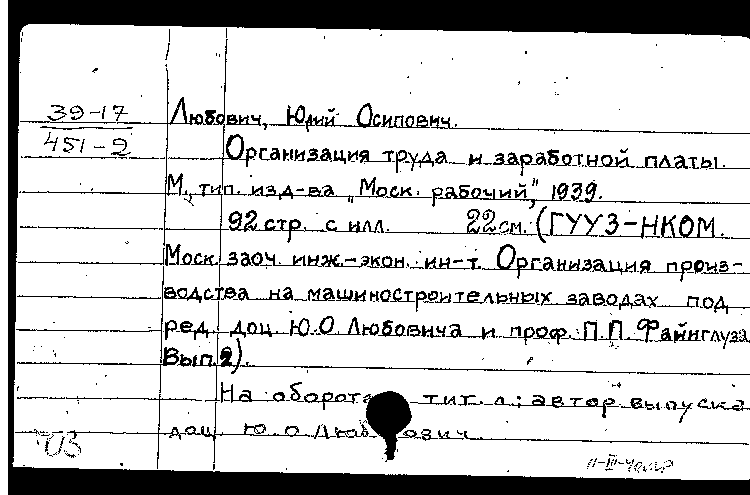 39-17
451-2
Любович, Юрий Осипович.
Организация труда и заработной платы.
М., тип. изд-ва "Моск. рабочий", 1939.
92 стр. с илл. 22 см. (ГУУЗ-НКОМ.
Моск. заоч. инж.-экон. ин-т. Организация произ-
водства на машиностроительных заводах под
ред. доц. Ю.О. Любовича и проф. П.П. Файнглуза
Вып. 2).
На обороте тит. л.: автор выпуска
доц. Ю.О. Любович.